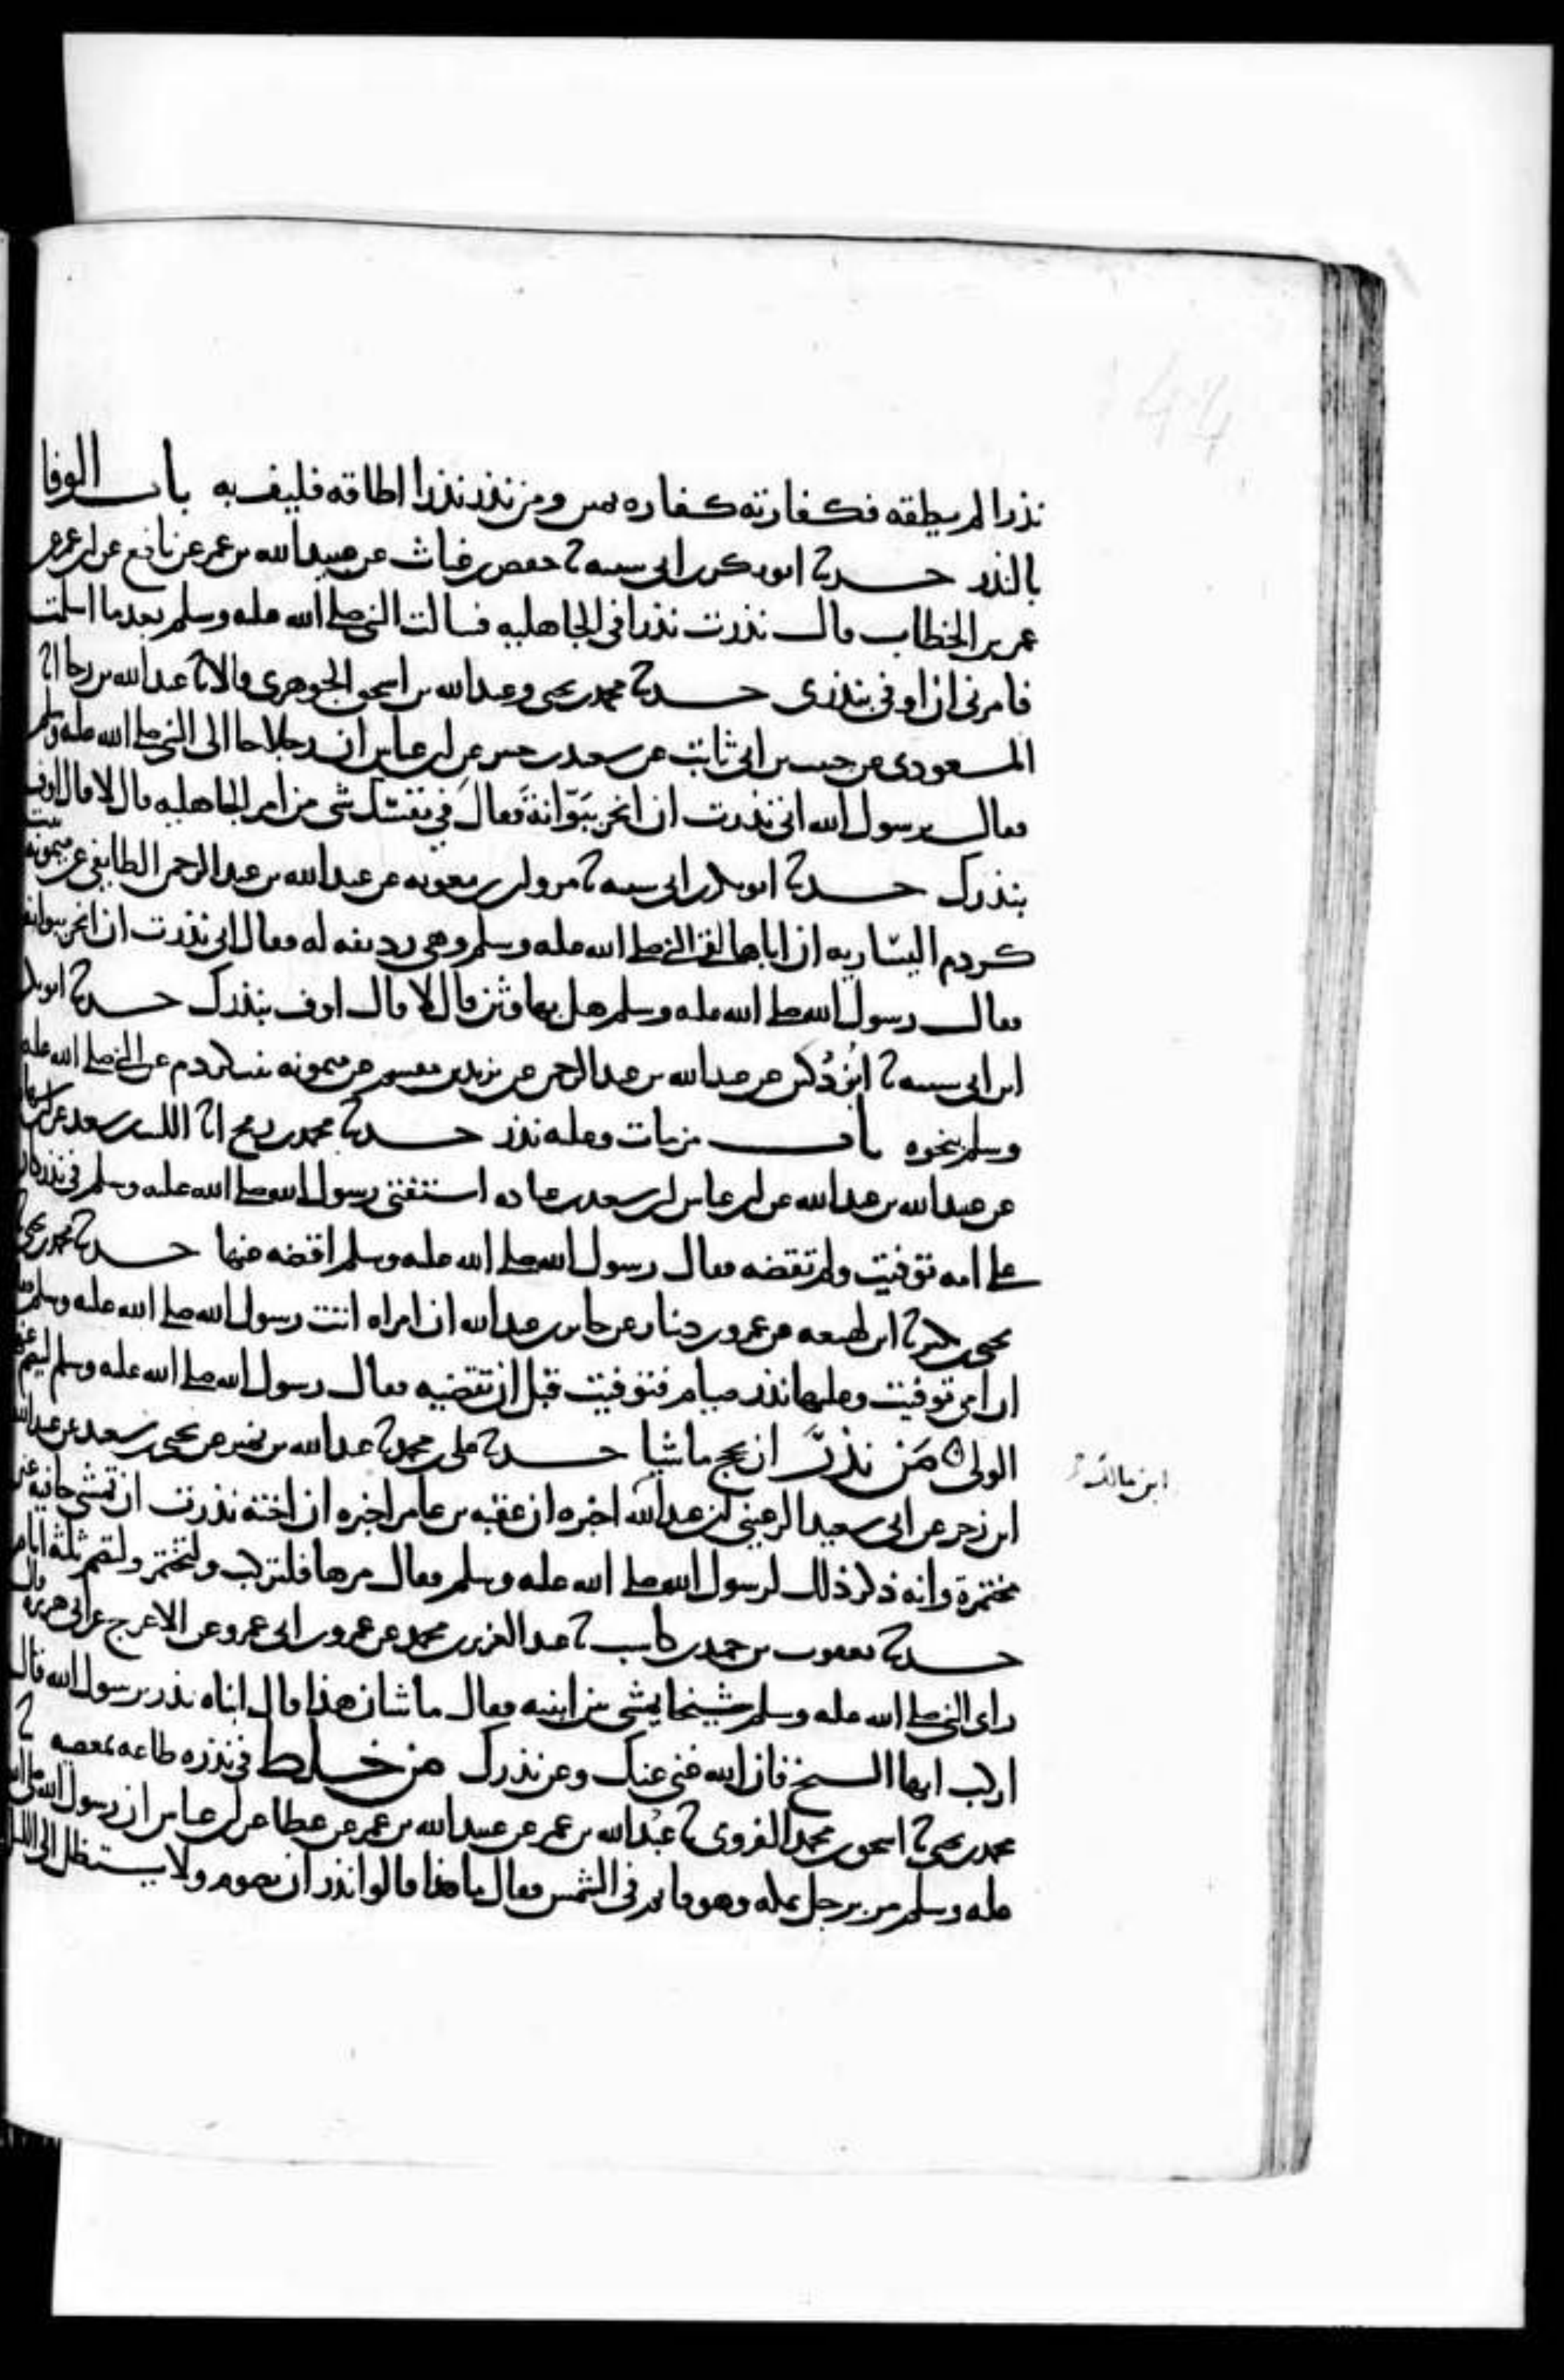 نذرا لم يطقه فكفارته كفاره يمين ومن نذر نذرا اطاقه فليف به باب الوفا
بالنذر حدثنا ابو بكر بن ابى شيبه ثنا حفص بن غياث عن عبيد الله بن عمر عن نافع عن ابن عمر عن
عمر بن الخطاب قال نذرت نذرا فى الجاهليه فسالت النبى صلى الله عليه وسلم بعد ما اسلمت
فامرنى ان اوفى بنذرى حدثنا محمد بن يحيى وعبد الله بن اسحق الجوهرى قالا ثنا عبد الله بن رجا انا
المسعودى عن حبيب بن ابى ثابت عن سعيد بن جبير عن ابن عباس ان رجلا جا الى النبى صلى الله عليه وسلم
فقال يرسول الله انى نذرت ان انحر ببَوّانةَ فقالَ فى نفسك شى من امر الجاهليه قال لا قال اوف
بنذرك حدثنا ابو بكر بن ابى شيبه ثنا مروان بن معويه عن عبد الله بن عبد الرحمن الطايفى عن ميمونه بنت
كردم اليساريه ان اباها لقى النبى صلى الله عليه وسلم وهى رديفه له فقال انى نذرت ان انحر ببوانه
فقال رسول الله صلى الله عليه وسلم هل بها وثن قال لا قال اوف بنذرك حدثنا ابو بكر
ابن ابى شيبه ثنا ابن دُكين عن عبد الله بن عبد الرحمن عن يزيد بن مقسم عن ميمونه بنت كردم عن النبى صلى الله عليه
وسلم بنحوه باب من مات وعليه نذر حدثنا محمد بن رمح انا الليث بن سعد عن ابن شهاب
عن عبيد الله بن عبد الله عن ابن عباس ان سعد بن عباده استفتى رسول الله صلى الله عليه وسلم فى نذر كان
على امه توفيت ولم تقضه فقال رسول الله صلى الله عليه وسلم اقضه عنها حدثنا محمد بن يحيى ثنا
يحيى بن بكير ثنا ابن لهيعه عن عمرو بن دينار عن جابر بن عبد الله ان امراه اتت رسول الله صلى الله عليه وسلم فقالت
ان امى توفيت وعليها نذر صيام فتوفيت قبل ان تقضيه فقال رسول الله صلى الله عليه وسلم ليصم عنها
الولى مَن نذرَ ان يحج ماشيا حدثنا على بن محمد ثنا عبد الله بن نمير عن يحيى بن سعيد عن عبيد الله
ابن زحر عن ابى سعيد الرعينى ان عبد الله اخبره ان عقبه بن عامر اخبره ان اخته نذرت ان تمشى حافيه غير
مختمرة وانه ذكر ذلك لرسول الله صلى الله عليه وسلم فقال مرها فلتركب ولتختمر ولتصم ثلثة ايام
حدثنا يعقوب بن حميد بن كاسب ثنا عبد العزيز بن محمد عن عمرو بن ابى عمرو عن الاعرج عن ابى هريره قال
راى النبى صلى الله عليه وسلم شيخا يمشى بين ابنيه فقال ما شان هذا قال ابناه نذر يرسول الله قال
اركب ايها الشيخ فان الله غنى عنك وعن نذرك من خلط فى نذره طاعه بمعصيه ثنا
محمد بن يحيى ثنا اسحق بن محمد الفروى ثنا عبُد الله بن عمر عن عبيد الله بن عمر عن عطا عن ابن عباس ان رسول الله صلى الله
عليه وسلم مر برجل بمكه وهو قايم فى الشمس فقال ما هذا قالوا نذر ان يصوم ولا يستظل الى الليل
ابن مالك